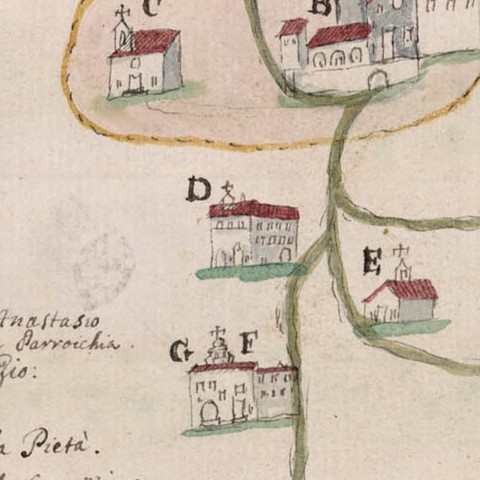 C
B
D
E
G F
nastasio
Parroichia.
Pietà.